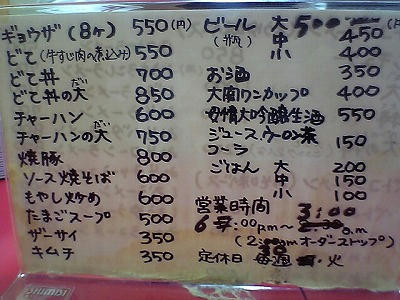 ギョウザ(8ヶ) 550(円)
どて(牛すじ肉の煮込み)550
どて丼 700
どて丼の大(だい) 850
チャーハン 600
チャーハンの大(だい) 750
焼豚 800
ソース焼そば 600
もやし炒め 600
たまごスープ 500
ザーサイ 350
キムチ 350
ビール 大 500
中 450
小 400
お酒 350
大関ワンカップ 400
大吟醸生酒 550
ジュースウーロン茶
コーラ 150
ごはん 大 200
中 150
小 100
営業時間 3:00
6:00pm〜 a.m
(2:00mオーダーストップ)
定休日 毎週 火